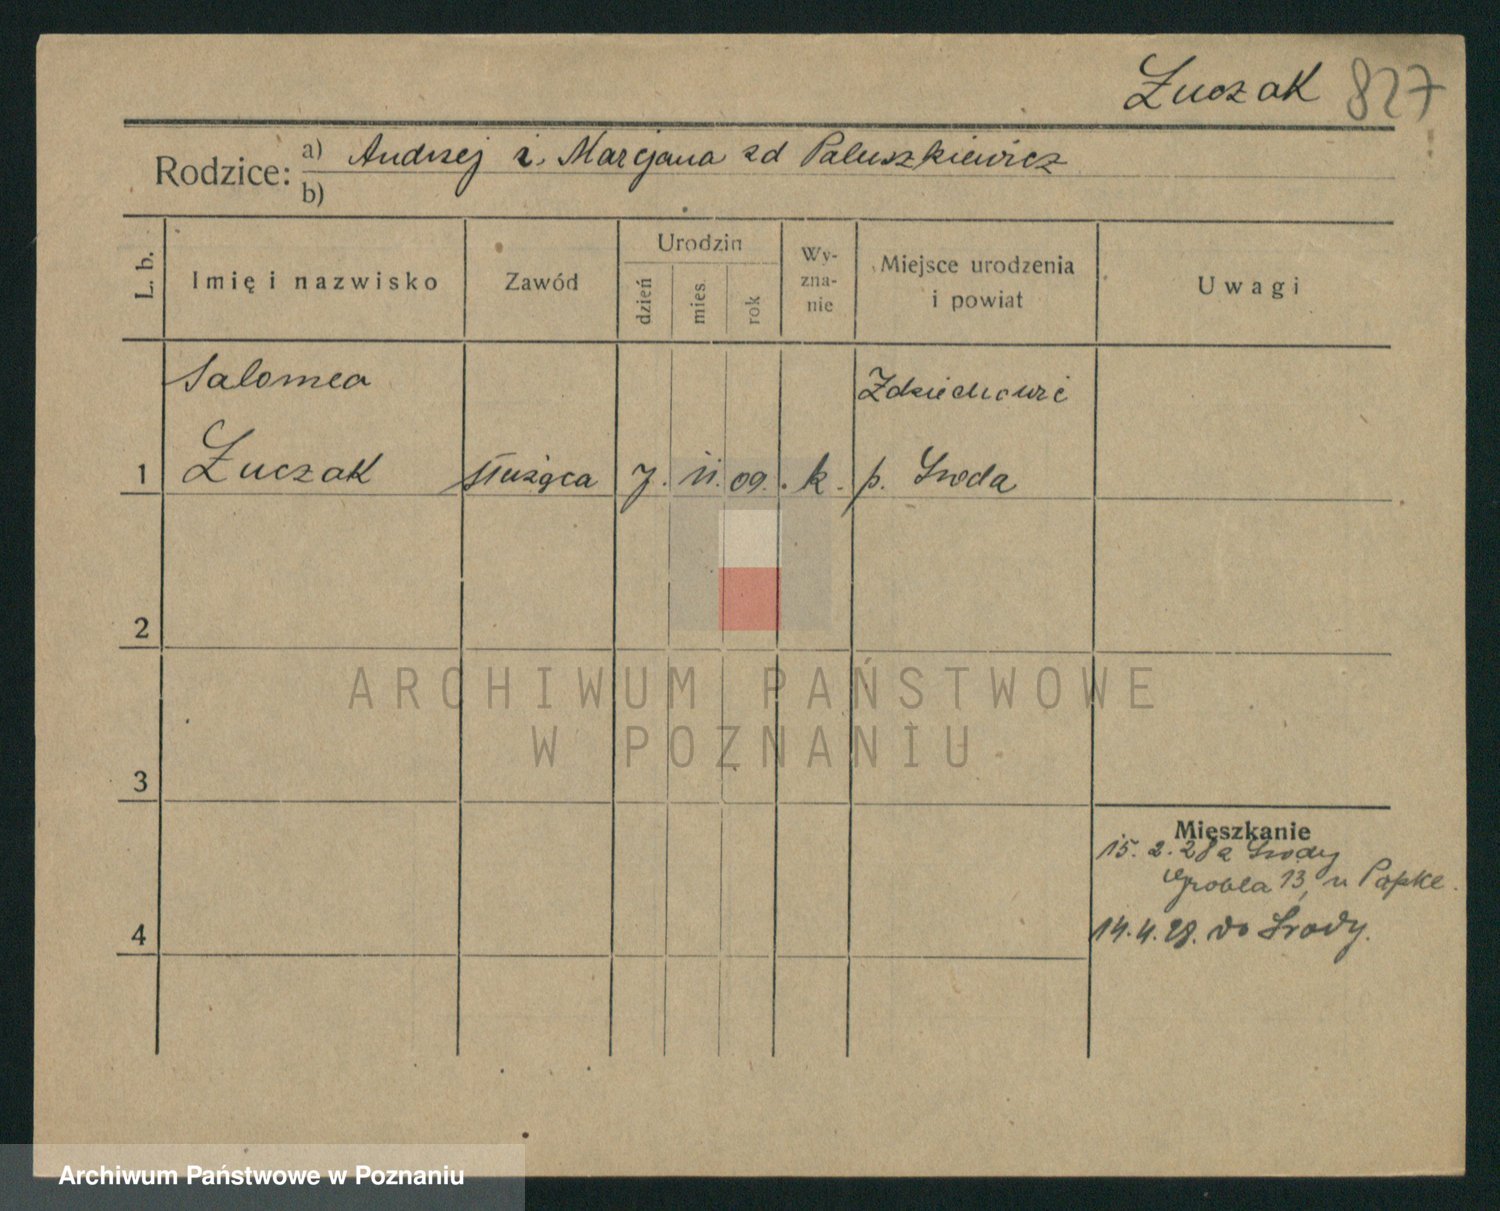 Łuczak 827
Rodzice: a) Andrzej i Marcjana zd Paluszkiewicz
b)
L. b.
Imię i nazwisko
Zawód
Urodzin
dzień
mies.
rok
Wy-
zna-
nie
Miejsce urodzenia
i powiat
Uwagi
Salomea
Łuczak
1
służąca
7. 11. 09.
k.
p. Środa
2
3
4
ARCHIWUM PAŃSTWOWE
W POZNANIU
Mieszkanie
15. 2. 28 z Środy
Grobla 13, u Papke.
14. 4. 28. do Środy.
Archiwum Państwowe w Poznaniu